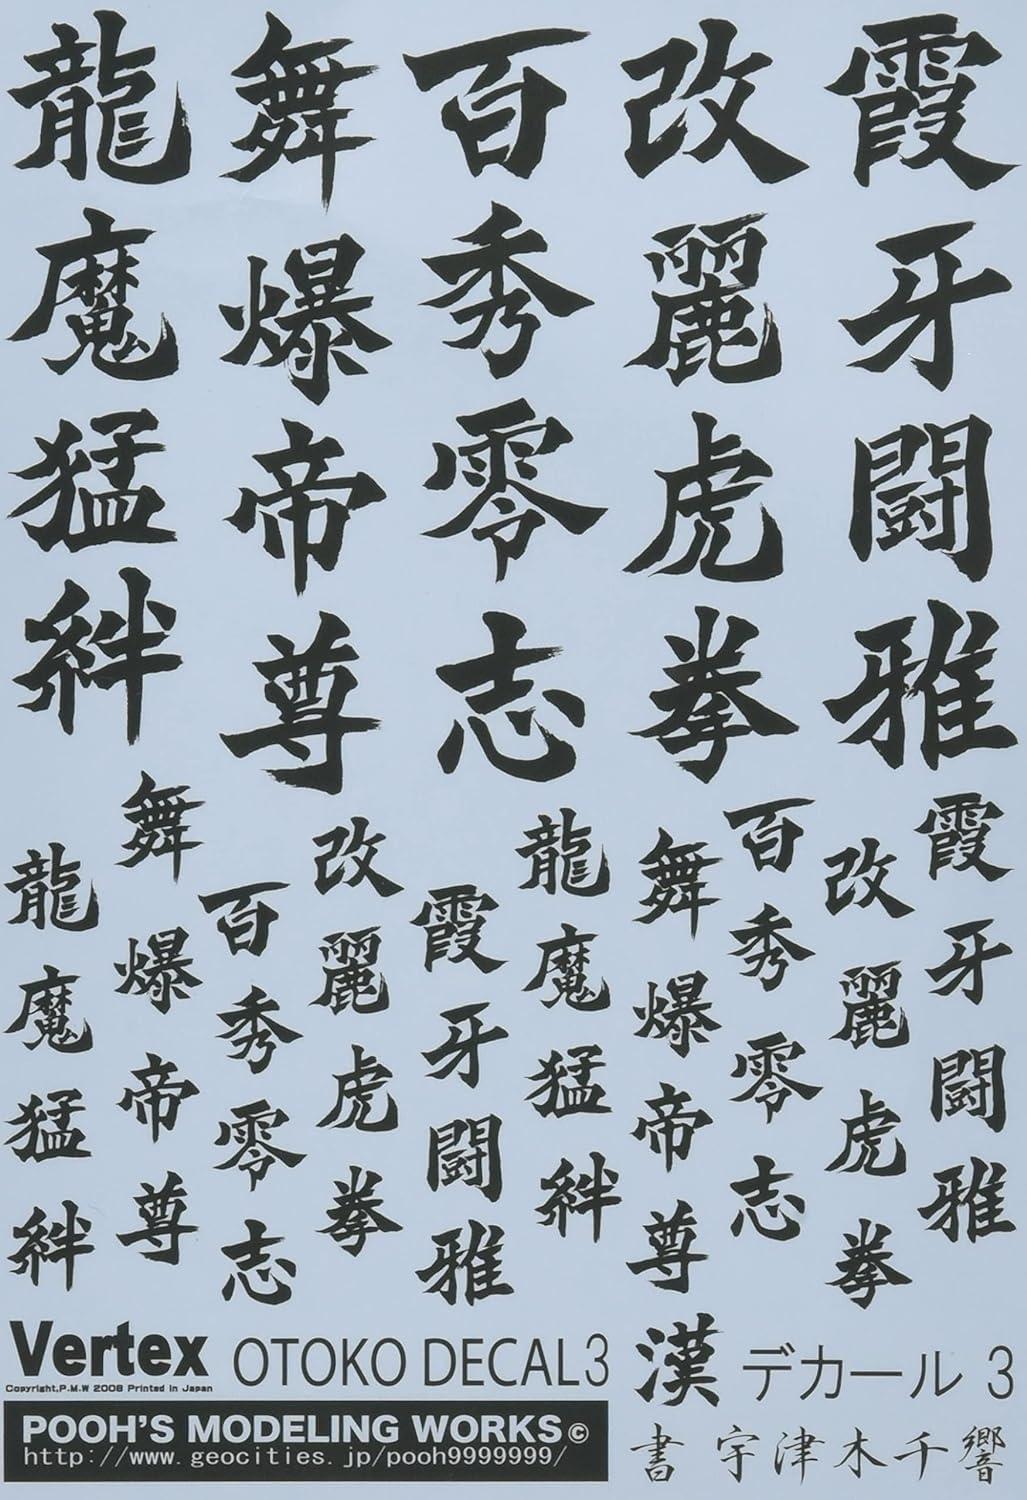 龍 舞 百 改 霞
魔 爆 秀 麗 牙
猛 帝 零 虎 闘
絆 尊 志 拳 雅
龍 舞 百 改 霞 龍 舞 百 改 霞
魔 爆 秀 麗 牙 魔 爆 秀 麗 牙
猛 帝 零 虎 闘 猛 帝 零 虎 闘
絆 尊 志 拳 雅 絆 尊 志 拳 雅
Vertex OTOKO DECAL3 漢 デカール 3
Copyright,P.M.W 2008 Printed in Japan
POOH'S MODELING WORKS©
http://www.geocities.jp/pooh9999999/
書 宇津木千響